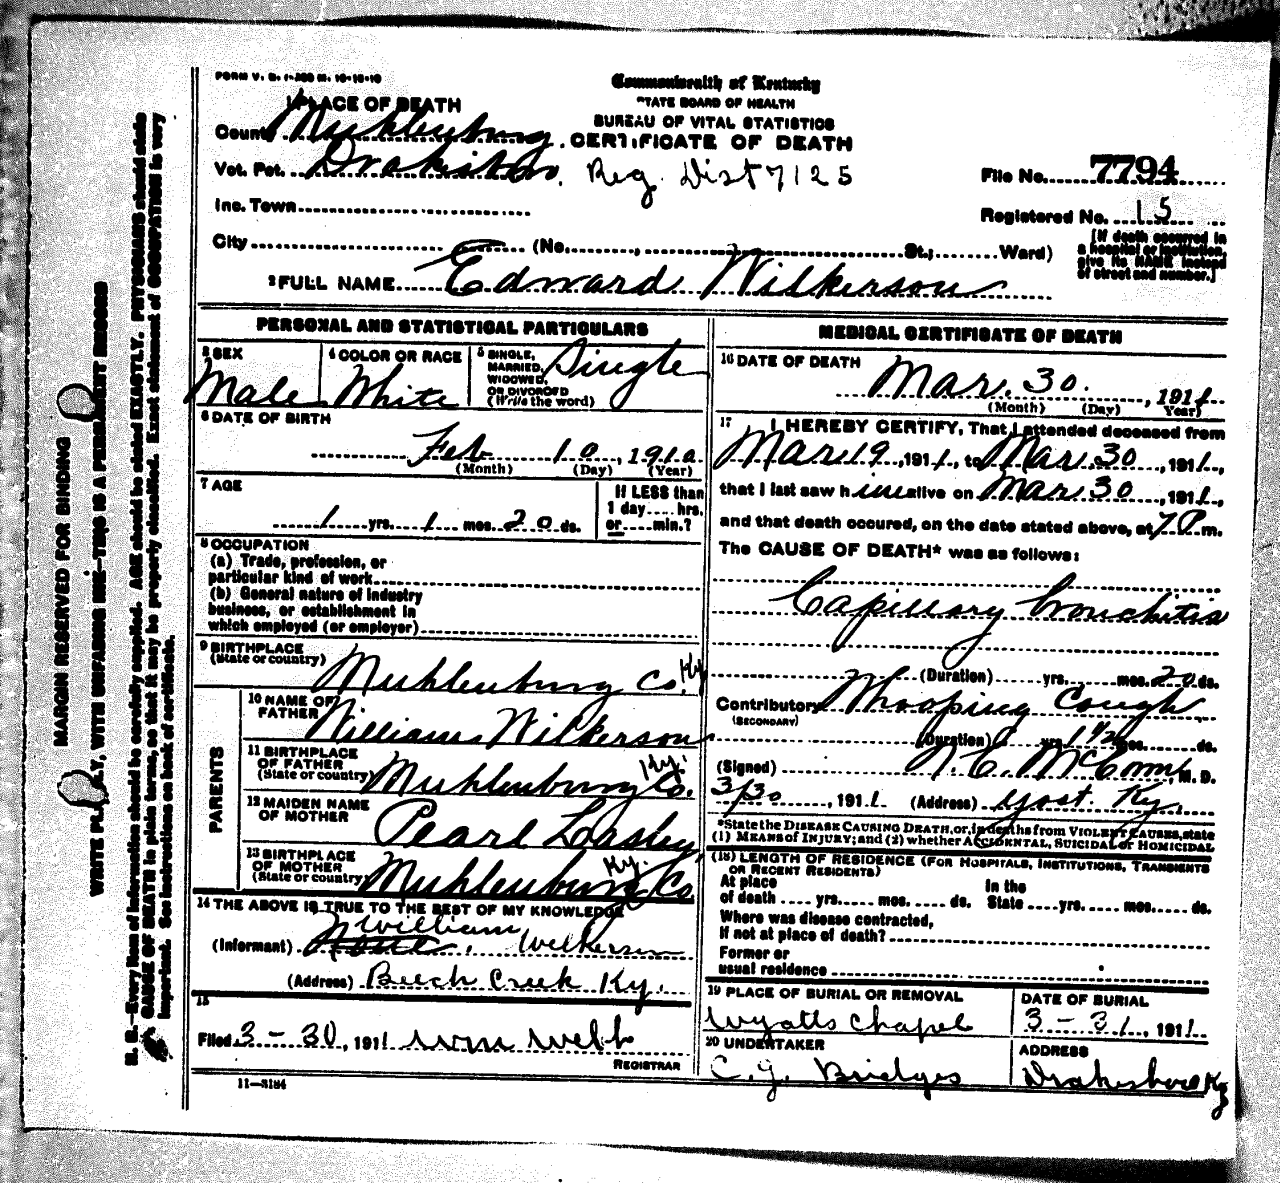 FORM V. S. 1-200 M. 10-10-10
Commonwealth of Kentucky
STATE BOARD OF HEALTH
BUREAU OF VITAL STATISTICS
CERTIFICATE OF DEATH
1 PLACE OF DEATH
County Muhlenburg
Vot. Pct. Drakesboro. Reg. Dist 7125
Inc. Town
City (No. , St.; Ward)
File No. 7794
Registered No. 15
[If death occurred in
a hospital or institution,
give its NAME instead
of street and number.]
2 FULL NAME Edward Wilkerson
PERSONAL AND STATISTICAL PARTICULARS
3 SEX
Male
4 COLOR OR RACE
White
5 SINGLE,
MARRIED,
WIDOWED,
OR DIVORCED
(Write the word)
Single
6 DATE OF BIRTH
Feb 10, 1910
(Month) (Day) (Year)
7 AGE
1 yrs. 1 mos. 20 ds.
If LESS than
1 day.... hrs.
or.... min.?
8 OCCUPATION
(a) Trade, profession, or
particular kind of work
(b) General nature of industry
business, or establishment in
which employed (or employer)
9 BIRTHPLACE
(State or country)
Muhlenburg Co. Ky
PARENTS
10 NAME OF
FATHER
William Wilkerson
11 BIRTHPLACE
OF FATHER
(State or country)
Muhlenburg Co. Ky.
12 MAIDEN NAME
OF MOTHER
Pearl Lasley
13 BIRTHPLACE
OF MOTHER
(State or country)
Muhlenburg Co Ky.
14 THE ABOVE IS TRUE TO THE BEST OF MY KNOWLEDGE
William
(Informant) Wilkerson
(Address) Beech Creek Ky.
15
Filed 3-30, 1911 Wm Webb
REGISTRAR
11-3184
MEDICAL CERTIFICATE OF DEATH
16 DATE OF DEATH
Mar. 30. , 1911
(Month) (Day) (Year)
17 I HEREBY CERTIFY, That I attended deceased from
Mar 19, 1911, to Mar. 30, 1911,
that I last saw him alive on Mar 30, 1911,
and that death occured, on the date stated above, at 7 P. m.
The CAUSE OF DEATH* was as follows:
Capillary bronchitis
(Duration) yrs. mos. 20 ds.
Contributory Whooping Cough
(SECONDARY)
(Duration) yrs. 1 1/2 mos. ds.
(Signed) , M. D.
3/30, 1911 (Address) Yost. Ky.
*State the DISEASE CAUSING DEATH, or, in deaths from VIOLENT CAUSES, state
(1) MEANS of INJURY; and (2) whether ACCIDENTAL, SUICIDAL or HOMICIDAL
(18) LENGTH OF RESIDENCE (FOR HOSPITALS, INSTITUTIONS, TRANSIENTS
OR RECENT RESIDENTS)
At place
of death .... yrs. mos. ds.
In the
State .... yrs. mos. ds.
Where was disease contracted,
if not at place of death?
Former or
usual residence
19 PLACE OF BURIAL OR REMOVAL
Wyatts Chapel
DATE OF BURIAL
3-31, 1911
20 UNDERTAKER
C. J. Bridges
ADDRESS
Drakesboro Ky
MARGIN RESERVED FOR BINDING
WRITE PLAINLY, WITH UNFADING INK—THIS IS A PERMANENT RECORD
N. B.—Every item of information should be carefully supplied. AGE should be stated EXACTLY. PHYSICIANS should state
CAUSE OF DEATH in plain terms, so that it may be properly classified. Exact statement of OCCUPATION is very
important. See instructions on back of certificate.